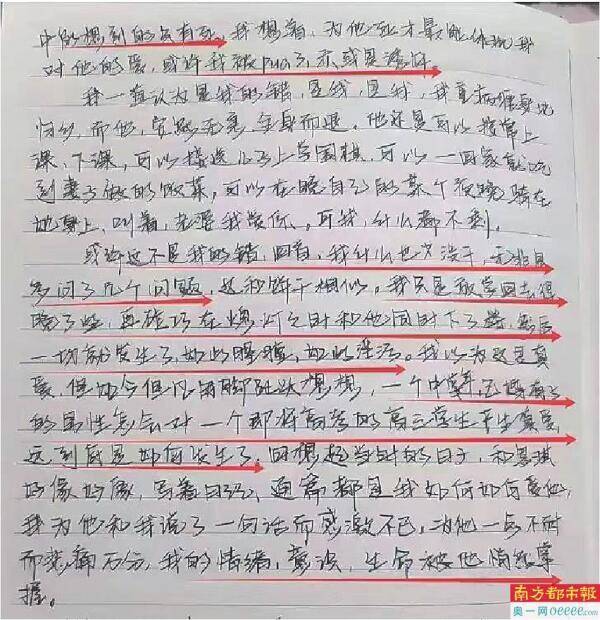 中能想到的只有死。我想着，为他死才最能体现我
对他的爱，或许我被pua了，亦或是
我一直认为是我的错，是我，是我，我
而他，安然无恙全身而退。他还是可以按常上
课、下课，可以接送儿子上学围棋，可以一回家就吃
到妻子做的饭菜，可以在晚自习的某个夜晚骑在
她身上，叫着，老婆我爱你。可我，什么都不剩。
或许这不是我的错，回首，我什么也没干，无非是
多问了几个问题，这和饼干相似。我只是放学回去得
晚了些，再碰巧在熄灯之时和他同时下了楼，然后
一切就发生了，如此暧昧，如此。我以为这是真
爱，但如今但凡用脚趾头想想，一个中年，已婚有子
的男性怎会对一个即将高考的高三学生产生真爱，
这到底是如何发生了，回想起当时的日子，和
好像好像，写着日记，通篇都是我如何如何爱他，
我为他和我说了一句话而感激不已，为他一点不耐
而悲痛万分，我的情绪，意识，生命被他情绪掌
握。
南方都市報
奥一网oeeee.com